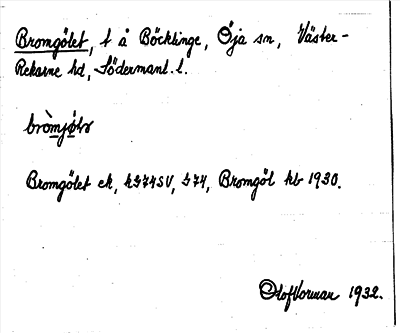 Bromgölet, t å Böcklinge, Öja sn, Väster-
Rekarne hd, Södermanl. l.
Bromgölet ek, k374SV, 374, Bromgöl kb 1930.
Olof Vorman 1932.